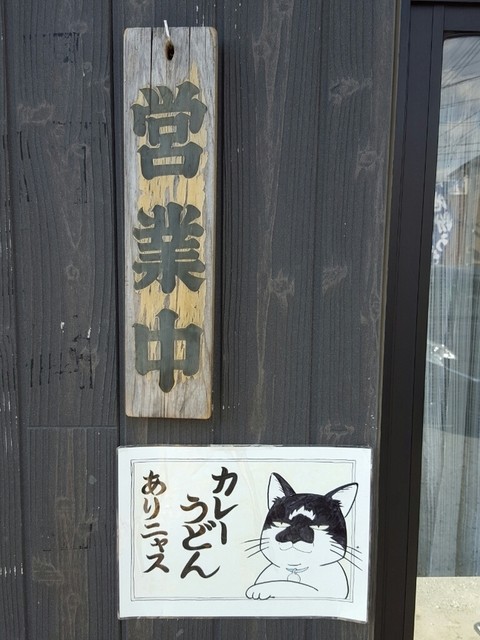 営業中
カレー
うどん
ありニャス